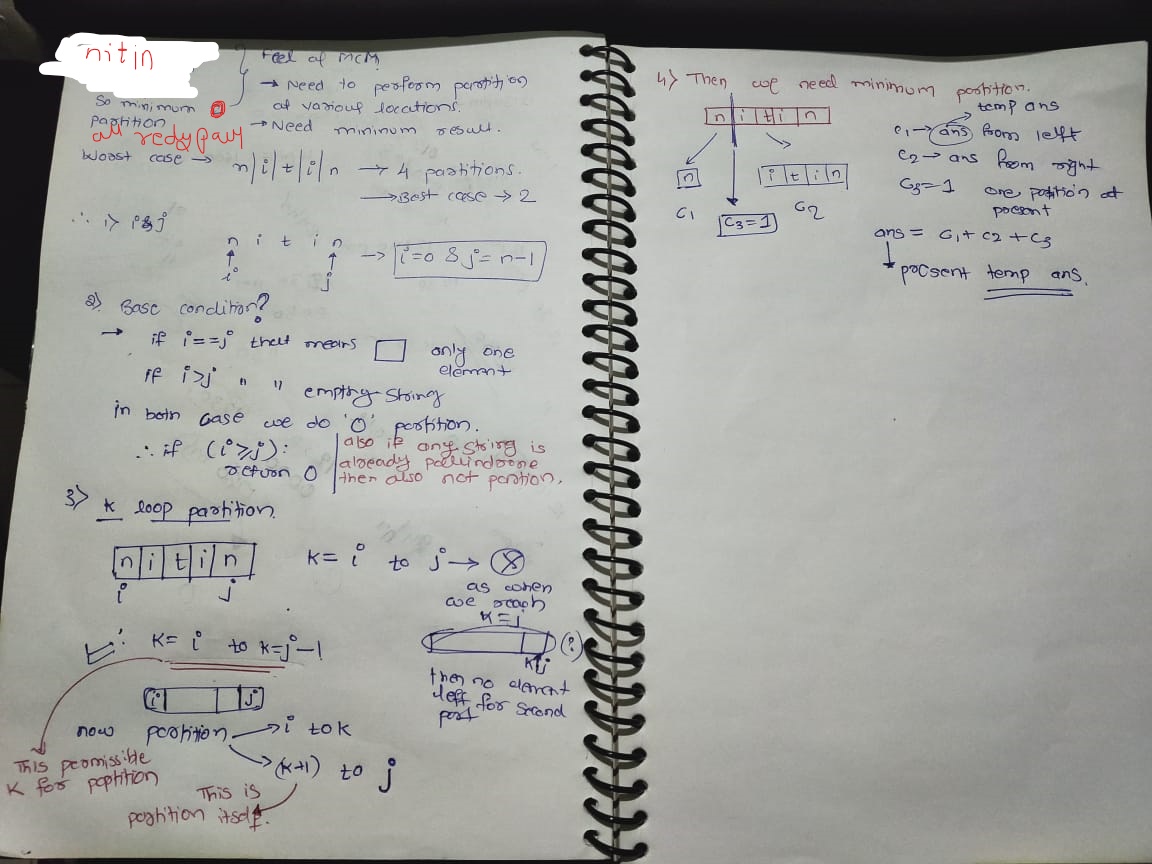 nitin
Feel of MCM
→ Need to perform partition
at various locations.
→ Need minimum result.
So minimum
partition
Worst case → n|i|t|i|n → 4 partitions.
→ Best case → 2
∴ 1) i & j
n i t i n → i=0 & j= n-1
i j
2) Base condition?
→ if i==j that means □ only one
element
if i>j " " empthy string
in both case we do '0' partition.
∴ if (i≥j):
return 0
also if any string is
already pallindrone
then also not partion.
3) K loop partition.
n i t i n K= i to j → ⊗
i j
as when
we reach
K=j
K= i to k=j-1
(?)
K j
then no element
left for second
part
i j
now partition → i to k
→ (k+1) to j
This permissible
K for partition
This is
partition itself.
4) Then we need minimum partition.
n i t i n
n i t i n
C1 C3=1 C2
temp ans
C1→ ans from left
C2→ ans from right
C3=1 one partition at
present
ans = C1 + C2 + C3
present temp ans.